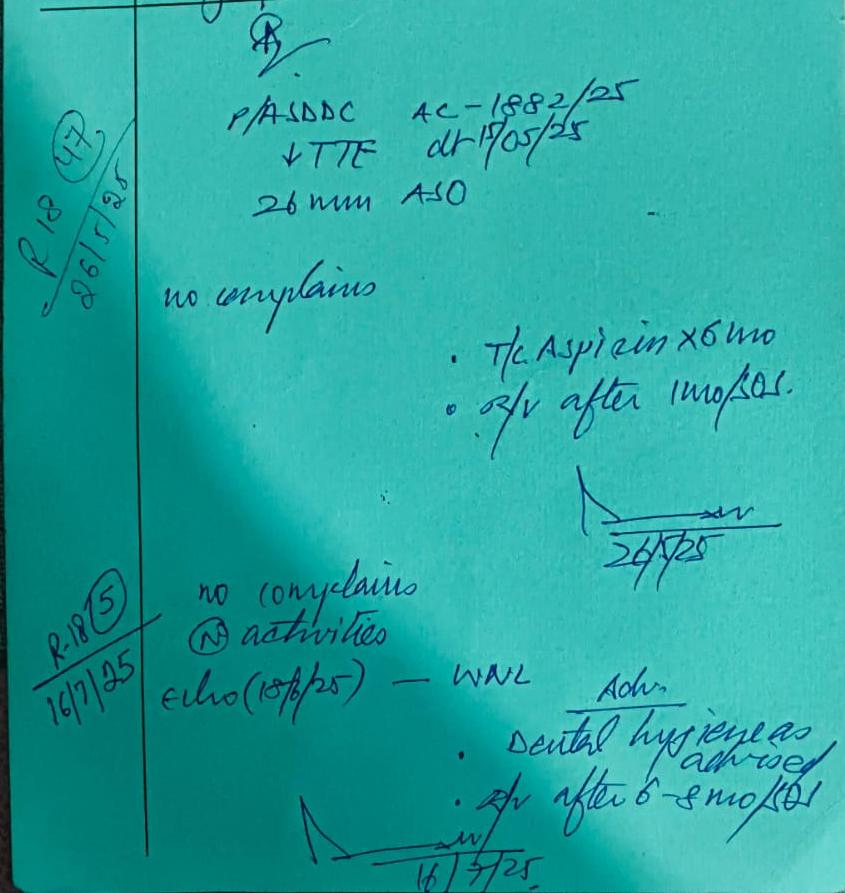 P/ASDDC AC-1882/25
↓TTE dt 15/05/25
26 mm ASO
R 18 47
26/5/25
no complains
• T/c. Aspirin x 6 mo
• R/v after 1mo/SOS.
26/5/25
R-18 5
16/7/25
no complains
(N) activities
Echo (18/6/25) — WNL
Adv.
• Dental hygiene as
advised
• R/v after 6-8 mo/SOS
16/7/25